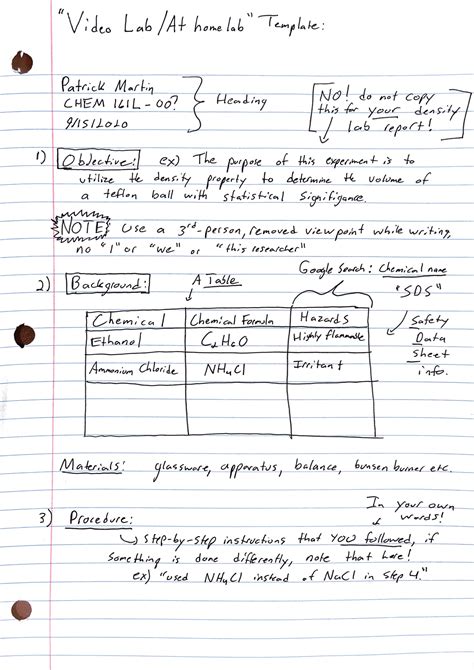 "Video Lab/At home lab" Template:
Patrick Martin
CHEM 161L-00?
9/15/2020
} Heading
[NO! do not copy
this for your density
lab report!]
1) Objective: ex) The purpose of this experiment is to
utilize the density property to determine the volume of
a teflon ball with statistical Signifigance.
NOTE: Use a 3rd-person, removed viewpoint while writing,
no "I" or "we" or "this researcher"
2) Background:
A Table
Google Search: Chemical name
"SDS"
Safety
Data
sheet
info.
Chemical Chemical Formula Hazards
Ethanol C2H6O Highly flammable
Ammonium Chloride NH4Cl Irritant
Materials: glassware, apparatus, balance, bunsen burner etc.
3) Procedure:
In your own
words!
step-by-step instructions that you followed, if
something is done differently, note that here!
ex) "used NH4Cl instead of NaCl in step 4."